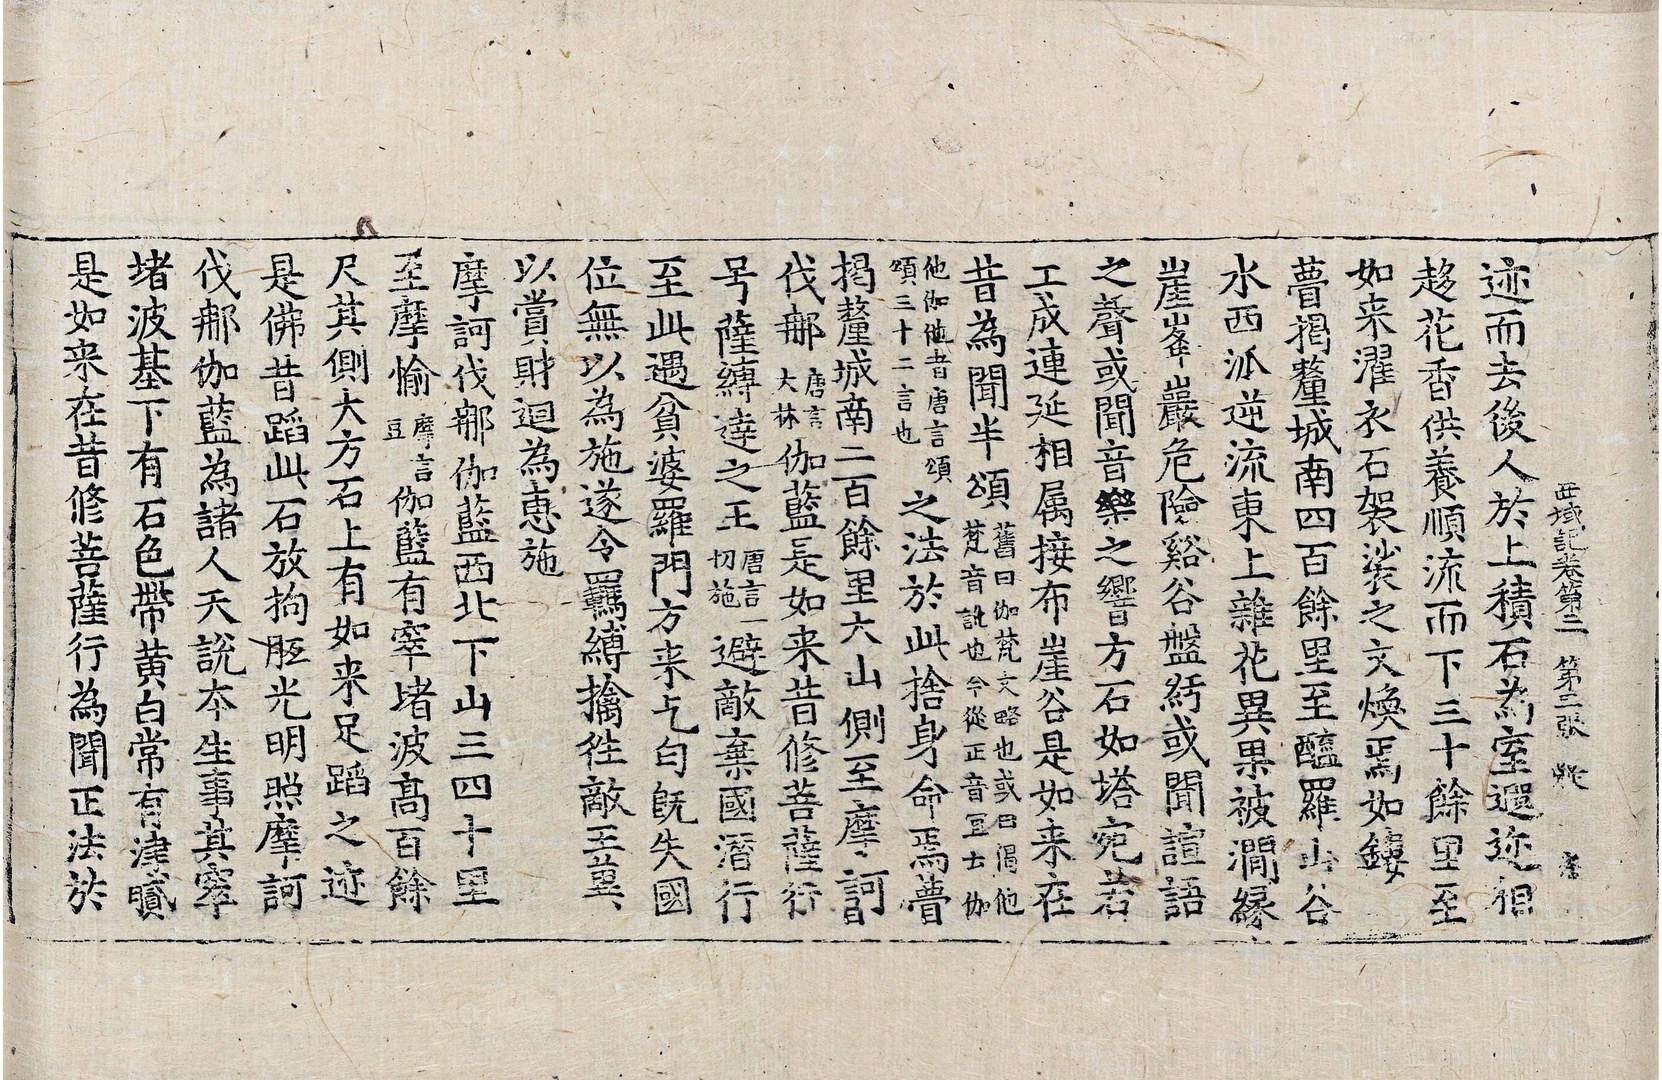 西域記卷第三 第三張
迹而去後人於上積石為室遐迩相
趍花香供養順流而下三十餘里至
如来濯衣石袈裟之文煥焉如鏤
瞢揭釐城南四百餘里至醯羅山谷
水西派逆流東上雜花異果被澗緣
崖峯巖危險谿谷盤紆或聞諠語
之聲或聞音樂之響方石如塔宛若
工成連延相属接布崖谷是如来在
昔為聞半頌舊曰伽梵文略也或曰偈他梵音訛也今從正音宜士伽
他伽他者唐言頌頌三十二言也之法於此捨身命焉瞢
揭釐城南二百餘里大山側至摩訶
伐郍唐言大林伽藍是如来昔修菩薩行
号薩縛達之王唐言一切施避敵棄國潜行
至此遇貧婆羅門方来乞匃旣失國
位無以為施遂令羈縛擒徃敵王冀
以賞財迴為恵施
摩訶伐郍伽藍西北下山三四十里
至摩愉摩言豆伽藍有窣堵波髙百餘
尺其側大方石上有如来足蹈之迹
是佛昔蹈此石放拘胝光明照摩訶
伐郍伽藍為諸人天說本生事其窣
堵波基下有石色帶黄白常有津膩
是如来在昔修菩薩行為聞正法於